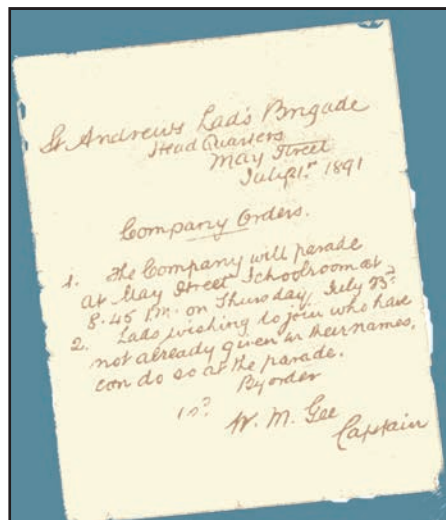 St Andrews Lad's Brigade
Head Quarters
May Street
July 21st 1891
Company Orders.
1. The Company will parade
at May Street Schoolroom at
8.45 P.M. on Thursday July 23rd
2. Lads wishing to join who have
not already given in their names,
can do so at the parade.
By order
W. M. Gee
Captain